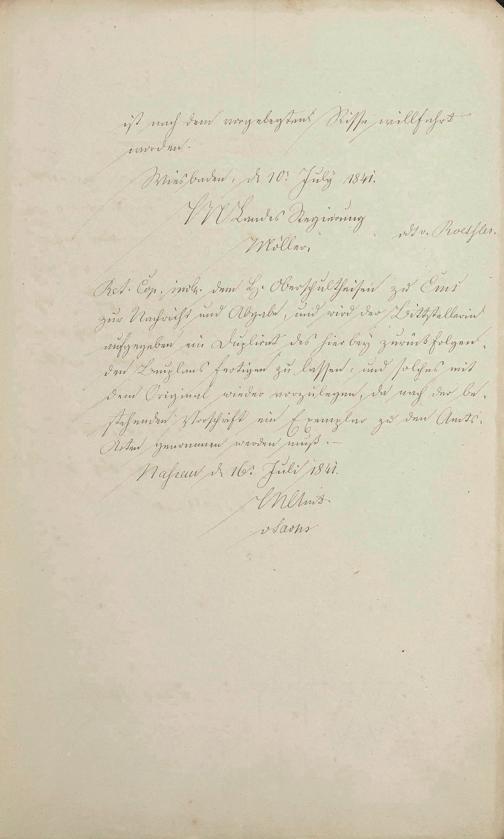 ist nach dem vorgelegten Risse willfahrt
worden.
Wiesbaden, d 10t July 1841.
H N Landes Regierung
Möller.
vdt. Roeßler.
Ret. Cop. inde. dem H. Oberschultheisen zu Ems
zur Nachricht und Abgabe, und wird der Bittstellerin
aufgegeben ein Duplicat des hierbey zurückfolgen-
den Bauplans fertigen zu lassen, und solches mit
dem Original wieder vorzulegen, da nach der be-
stehenden Vorschrift ein Exemplar zu den Amts-
Acten genommen werden muß.
Nassau d 16t Juli 1841.
H N Amt.